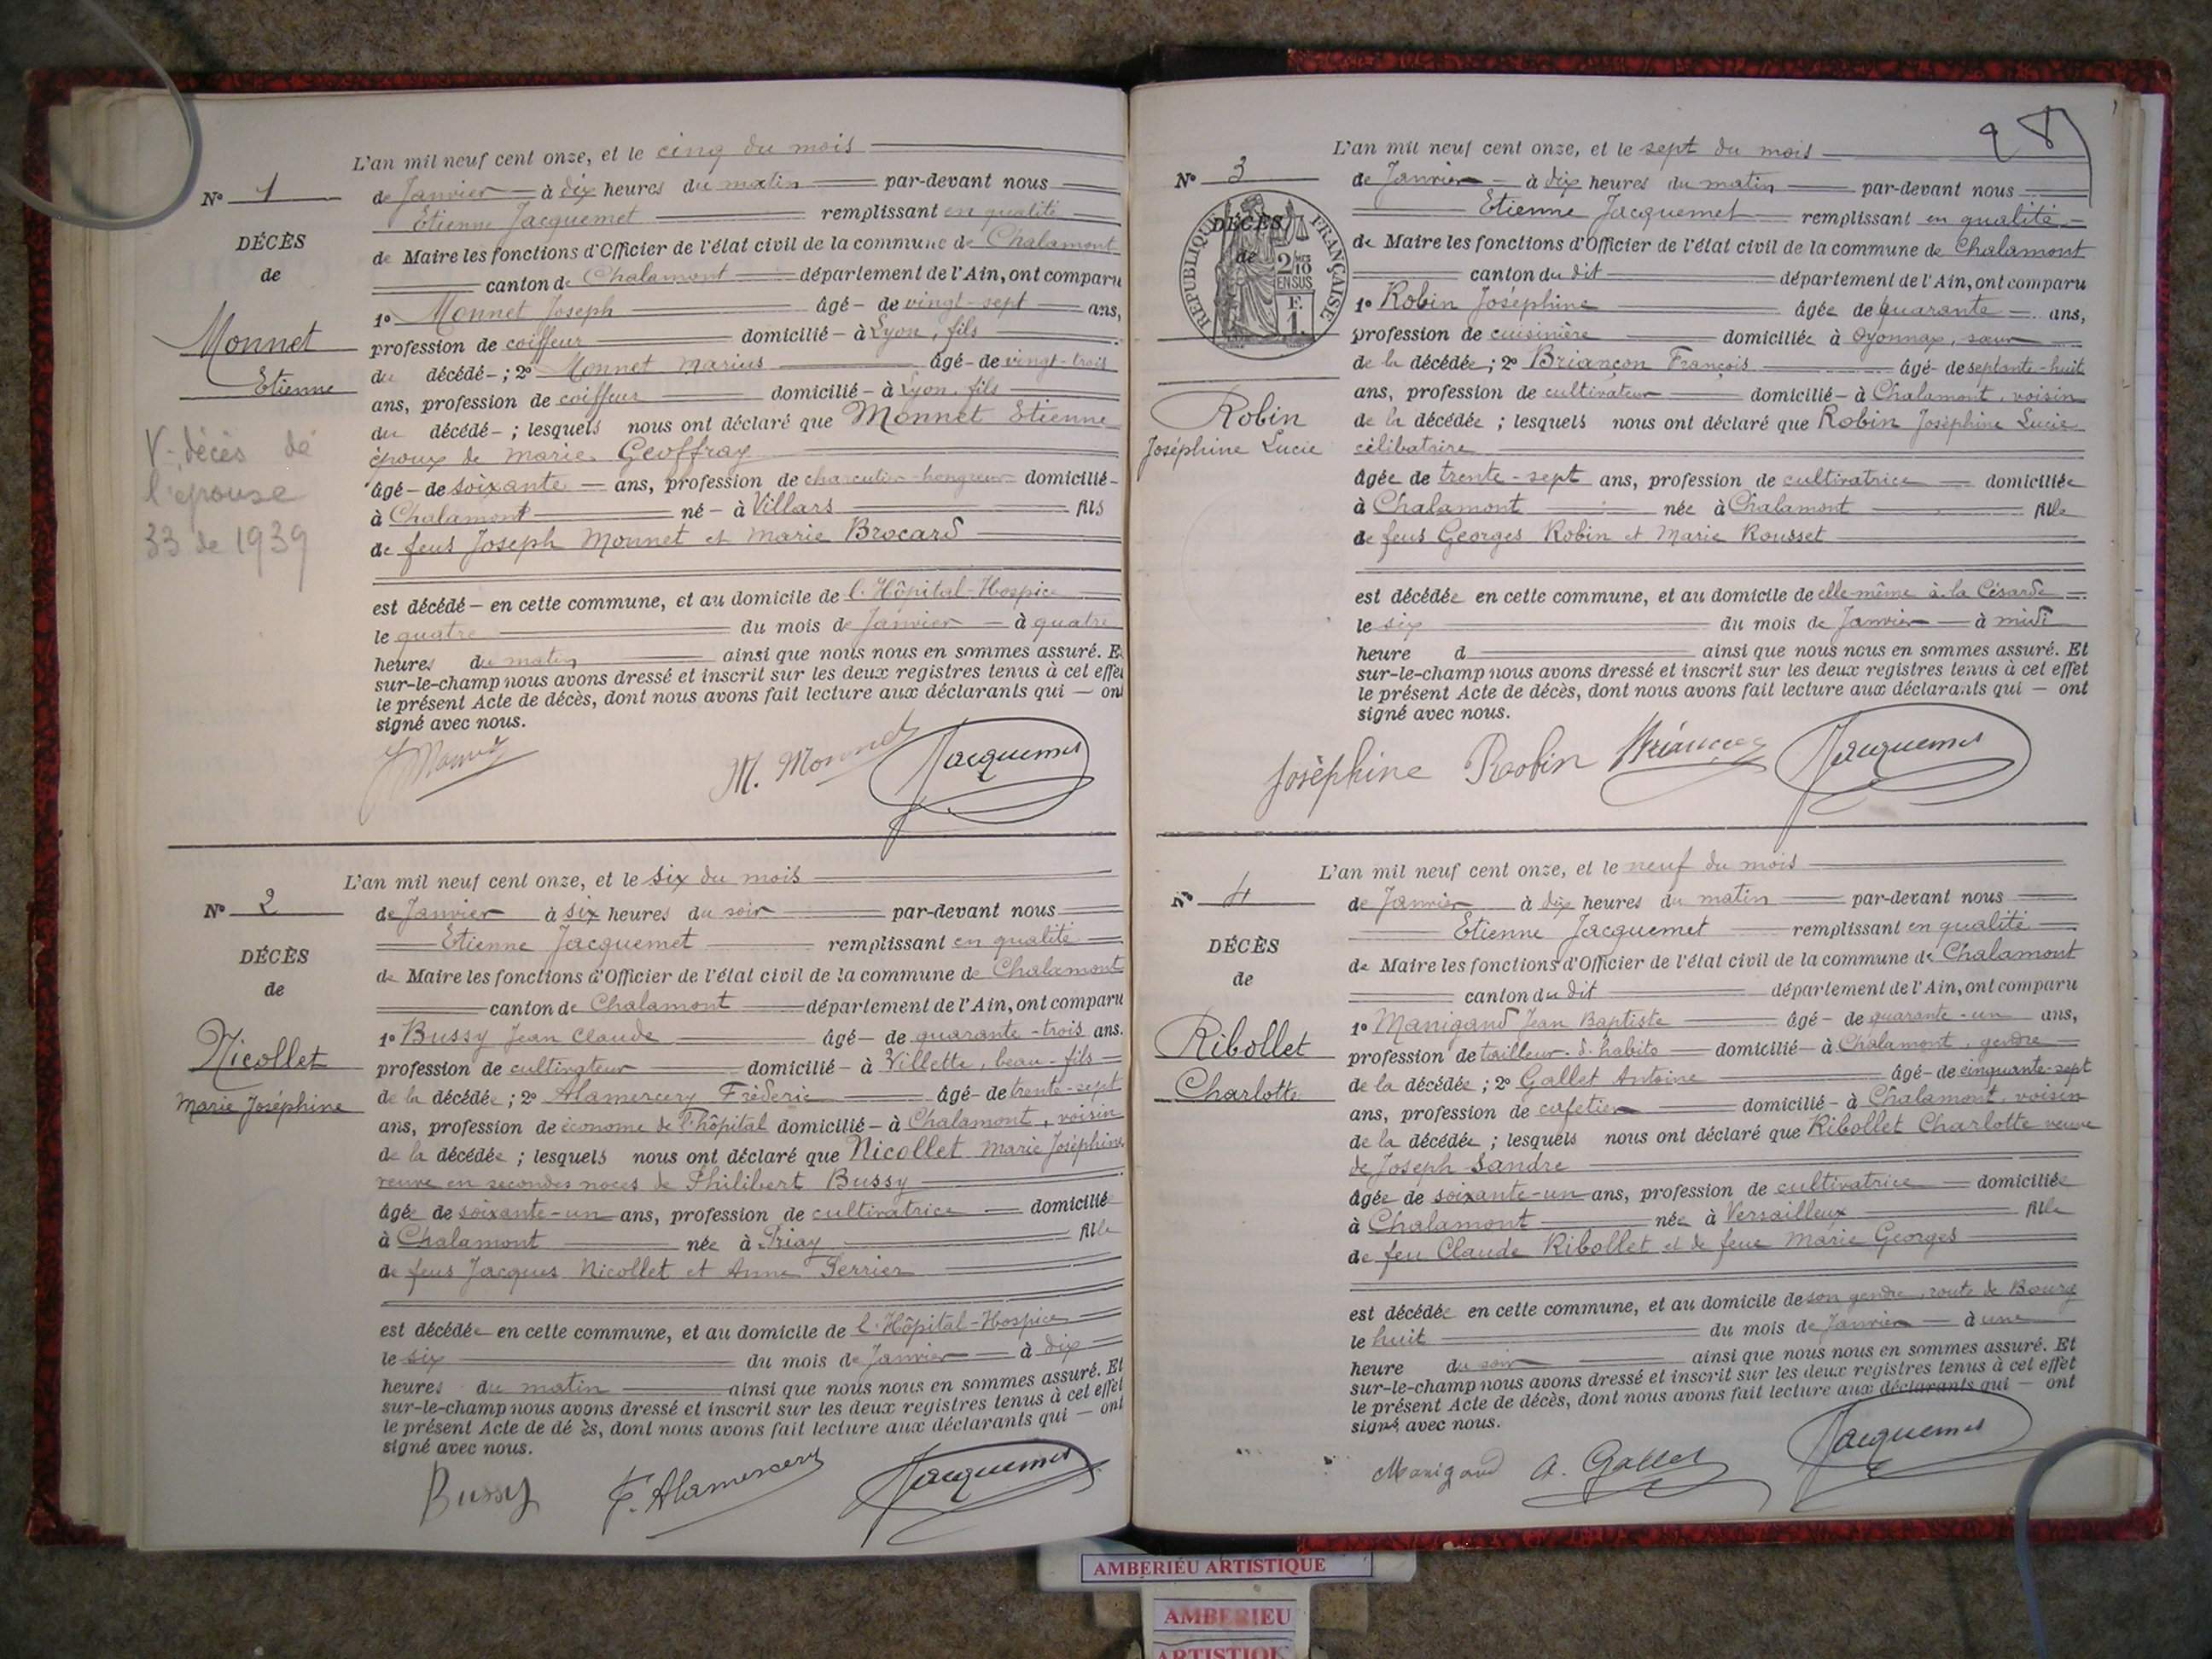 L'an mil neuf cent onze, et le cinq du mois
N° 1
de Janvier à dix heures du matin par-devant nous
Etienne Jacquemet remplissant en qualité
DÉCÈS
de
de Maire les fonctions d'Officier de l'état civil de la commune de Chalamont
canton de Chalamont département de l'Ain, ont comparu
1° Monnet Joseph âgé de vingt-sept ans,
Monnet
Etienne
profession de coiffeur domicilié à Lyon, fils
du décédé ; 2° Monnet Marius âgé de vingt-trois
ans, profession de coiffeur domicilié à Lyon, fils
du décédé ; lesquels nous ont déclaré que Monnet Etienne
époux de Marie Geoffray
V. décès de
l'épouse
33 de 1939
âgé de soixante ans, profession de charcutier-hongreur domicilié
à Chalamont né à Villars fils
de feus Joseph Monnet et Marie Brocard
est décédé en cette commune, et au domicile de l'Hôpital-Hospice
le quatre du mois de Janvier à quatre
heures du matin ainsi que nous nous en sommes assuré. E
sur-le-champ nous avons dressé et inscrit sur les deux registres tenus à cet effet
le présent Acte de décès, dont nous avons fait lecture aux déclarants qui ont
signé avec nous.
J Monnet M. Monnet Jacquemet
L'an mil neuf cent onze, et le six du mois
N° 2
de Janvier à six heures du soir par-devant nous
Etienne Jacquemet remplissant en qualité
DÉCÈS
de
de Maire les fonctions d'Officier de l'état civil de la commune de Chalamont
canton de Chalamont département de l'Ain, ont comparu
1° Bussy Jean Claude âgé de quarante-trois ans.
Nicollet
Marie Joséphine
profession de cultivateur domicilié à Villette, beau-fils
de la décédée ; 2° Alamercery Fréderic âgé de trente-sept
ans, profession de économe de l'hôpital domicilié à Chalamont, voisin
de la décédée ; lesquels nous ont déclaré que Nicollet Marie Joséphine
veuve en secondes noces de Philibert Bussy
âgée de soixante-un ans, profession de cultivatrice domicilié
à Chalamont née à Priay fille
de feus Jacques Nicollet et Anne Perrier
est décédée en cette commune, et au domicile de l'Hôpital-Hospice
le six du mois de Janvier à dix
heures du matin ainsi que nous nous en sommes assuré. Et
sur-le-champ nous avons dressé et inscrit sur les deux registres tenus à cet effet
le présent Acte de dé ès, dont nous avons fait lecture aux déclarants qui ont
signé avec nous.
Bussy F. Alamercery Jacquemet
28
L'an mil neuf cent onze, et le sept du mois
N° 3
de Janvier à dix heures du matin par-devant nous
Etienne Jacquemet remplissant en qualité
DÉCÈS
de
RÉPUBLIQUE FRANÇAISE
2/10 EN SUS
F.
1.
de Maire les fonctions d'Officier de l'état civil de la commune de Chalamont
canton du dit département de l'Ain, ont comparu
1° Robin Joséphine âgée de quarante ans,
profession de cuisinière domiciliée à Oyonnax, sœur
de la décédée ; 2° Briançon François âgé de septante-huit
Robin
Joséphine Lucie
ans, profession de cultivateur domicilié à Chalamont, voisin
de la décédée ; lesquels nous ont déclaré que Robin Joséphine Lucie
célibataire
âgée de trente-sept ans, profession de cultivatrice domiciliée
à Chalamont née à Chalamont fille
de feus Georges Robin et Marie Rousset
est décédée en cette commune, et au domicile de elle-même à la Césarde
le six du mois de Janvier à midi
heure d ainsi que nous nous en sommes assuré. Et
sur-le-champ nous avons dressé et inscrit sur les deux registres tenus à cet effet
le présent Acte de décès, dont nous avons fait lecture aux déclarants qui ont
signé avec nous.
Joséphine Robin Briançon Jacquemet
L'an mil neuf cent onze, et le neuf du mois
N° 4
de Janvier à dix heures du matin par-devant nous
Etienne Jacquemet remplissant en qualité
DÉCÈS
de
de Maire les fonctions d'Officier de l'état civil de la commune de Chalamont
canton du dit département de l'Ain, ont comparu
1° Manigand Jean Baptiste âgé de quarante-un ans,
Ribollet
Charlotte
profession de tailleur d'habits domicilié à Chalamont, gendre
de la décédée ; 2° Gallet Antoine âgé de cinquante-sept
ans, profession de cafetier domicilié à Chalamont, voisin
de la décédée ; lesquels nous ont déclaré que Ribollet Charlotte veuve
de Joseph Sandre
âgée de soixante-un ans, profession de cultivatrice domiciliée
à Chalamont née à Versailleux fille
de feu Claude Ribollet et de feue Marie Georges
est décédée en cette commune, et au domicile de son gendre, route de Bourg
le huit du mois de Janvier à une
heure du soir ainsi que nous nous en sommes assuré. Et
sur-le-champ nous avons dressé et inscrit sur les deux registres tenus à cet effet
le présent Acte de décès, dont nous avons fait lecture aux déclarants qui ont
signé avec nous.
Manigand A. Gallet Jacquemet
AMBERIEU ARTISTIQUE
AMBERIEU
ARTISTIQUE